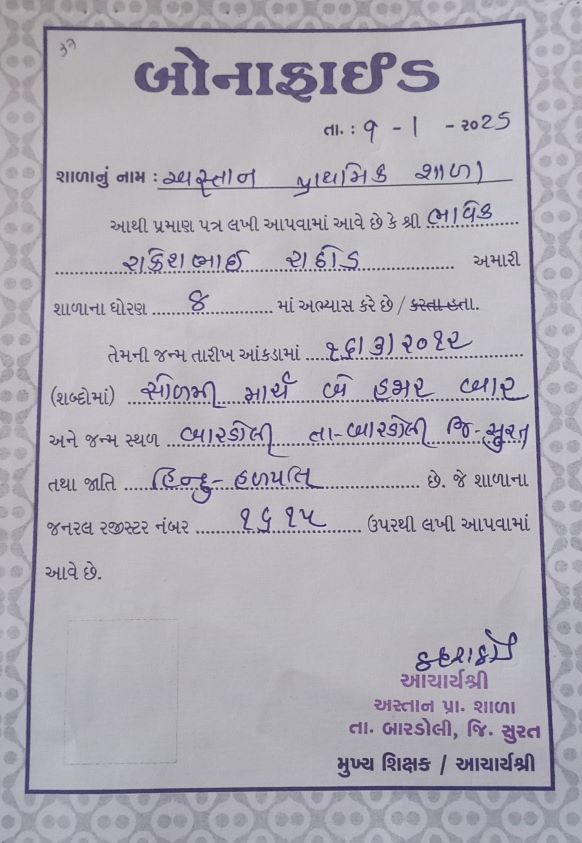 37
બોનાફાઈડ
તા. : ૧ - 1 - ૨૦25
શાળાનું નામ : અસ્તાન પ્રાથમિક શાળા
આથી પ્રમાણ પત્ર લખી આપવામાં આવે છે કે શ્રી ભાવિક
રાકેશભાઈ રાઠોડ અમારી
શાળાના ધોરણ ૪ માં અભ્યાસ કરે છે / કરતા હતા.
તેમની જન્મ તારીખ આંકડામાં ૧૬/૩/૨૦૧૨
(શબ્દોમાં) સોળમી માર્ચ બે હજાર બાર
અને જન્મ સ્થળ બારડોલી તા-બારડોલી જિ-સુરત
તથા જાતિ હિન્દુ-હળપતિ છે. જે શાળાના
જનરલ રજીસ્ટર નંબર ૧૬૧૫ ઉપરથી લખી આપવામાં
આવે છે.
આચાર્યશ્રી
અસ્તાન પ્રા. શાળા
તા. બારડોલી, જિ. સુરત
મુખ્ય શિક્ષક / આચાર્યશ્રી